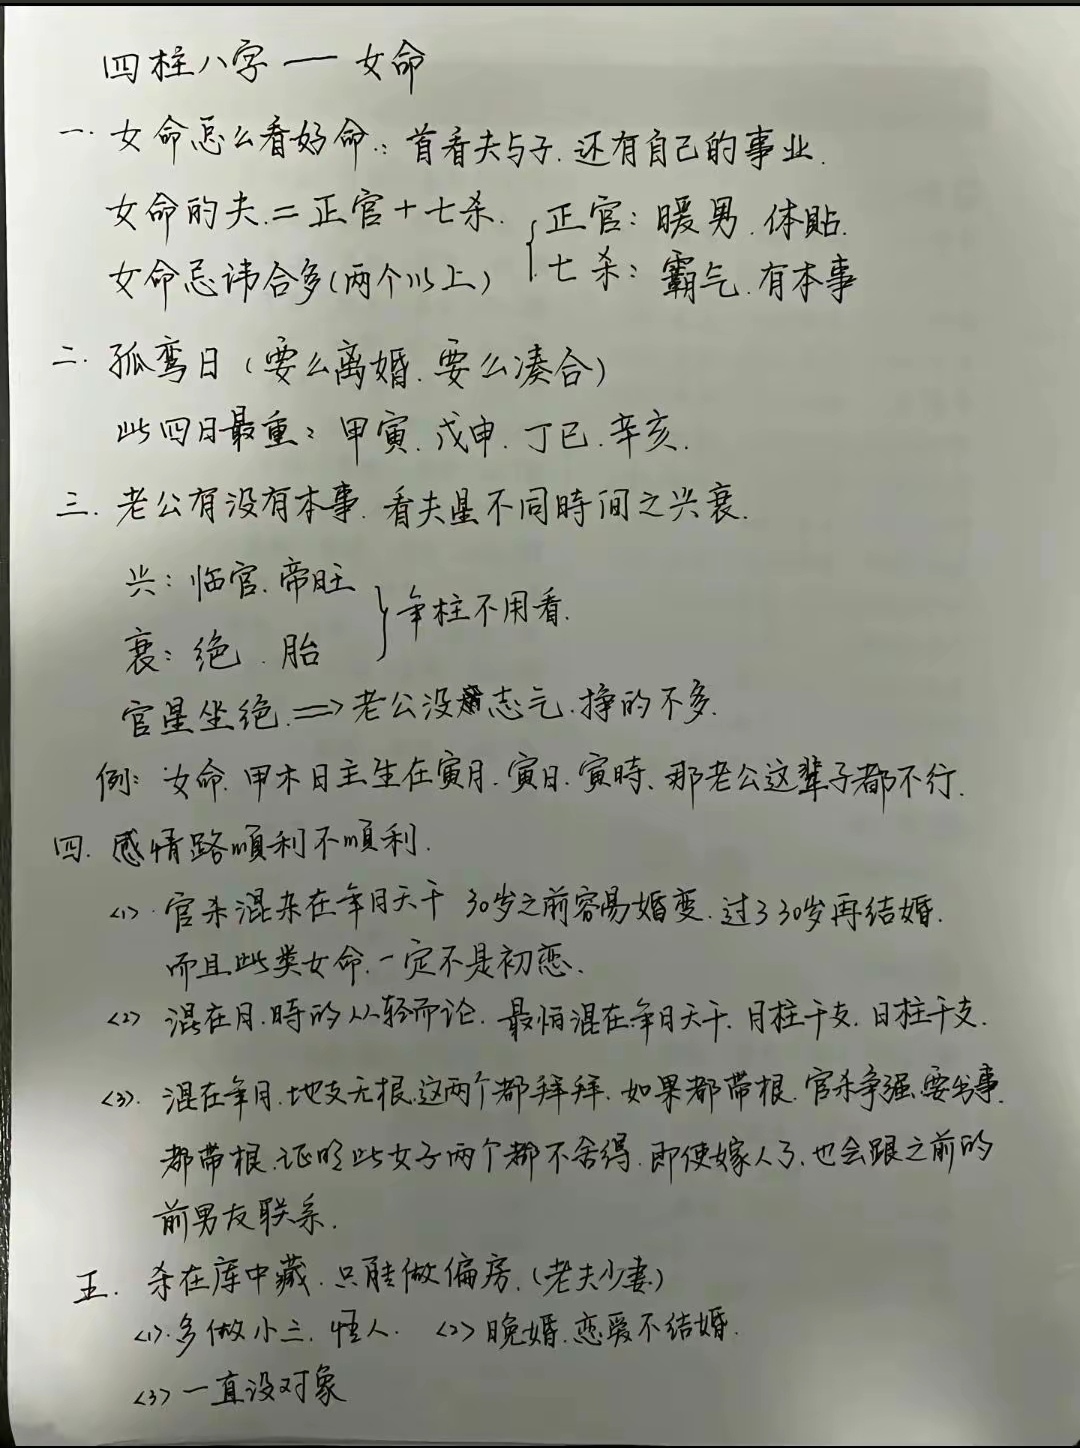 四柱八字 — 女命
一. 女命怎么看好命:: 首看夫与子. 还有自己的事业.
女命的夫.=正官+七杀. { 正官: 暖男. 体贴.
女命忌讳合多(两个以上) 七杀: 霸气. 有本事
二. 孤鸾日 (要么离婚. 要么凑合)
此四日最重: 甲寅. 戊申. 丁巳. 辛亥.
三. 老公有没有本事. 看夫星不同時间之兴衰.
兴: 临官. 帝旺
} 年柱不用看.
衰: 绝. 胎
官星坐绝. => 老公没 志气. 挣的不多.
例: 女命. 甲木日主生在寅月. 寅日. 寅時、那老公这辈子都不行.
四. 感情路顺利不顺利.
<1>. 官杀混杂在年月天干 30岁之前容易婚变. 过了30岁再结婚.
而且此类女命. 一定不是初恋.
<2> 混在月. 時的从轻而论. 最怕混在年月天干. 月柱干支. 日柱干支.
<3>. 混在年月. 地支无根. 这两个都拜拜. 如果都带根. 官杀争强. 要出事.
都带根. 证明此女子两个都不舍得. 即使嫁人了. 也会跟之前的
前男友联系.
五. 杀在库中藏. 只能做偏房. (老夫少妻)
<1>. 多做小三. 情人. <2> 晚婚. 恋爱不结婚.
<3> 一直没对象